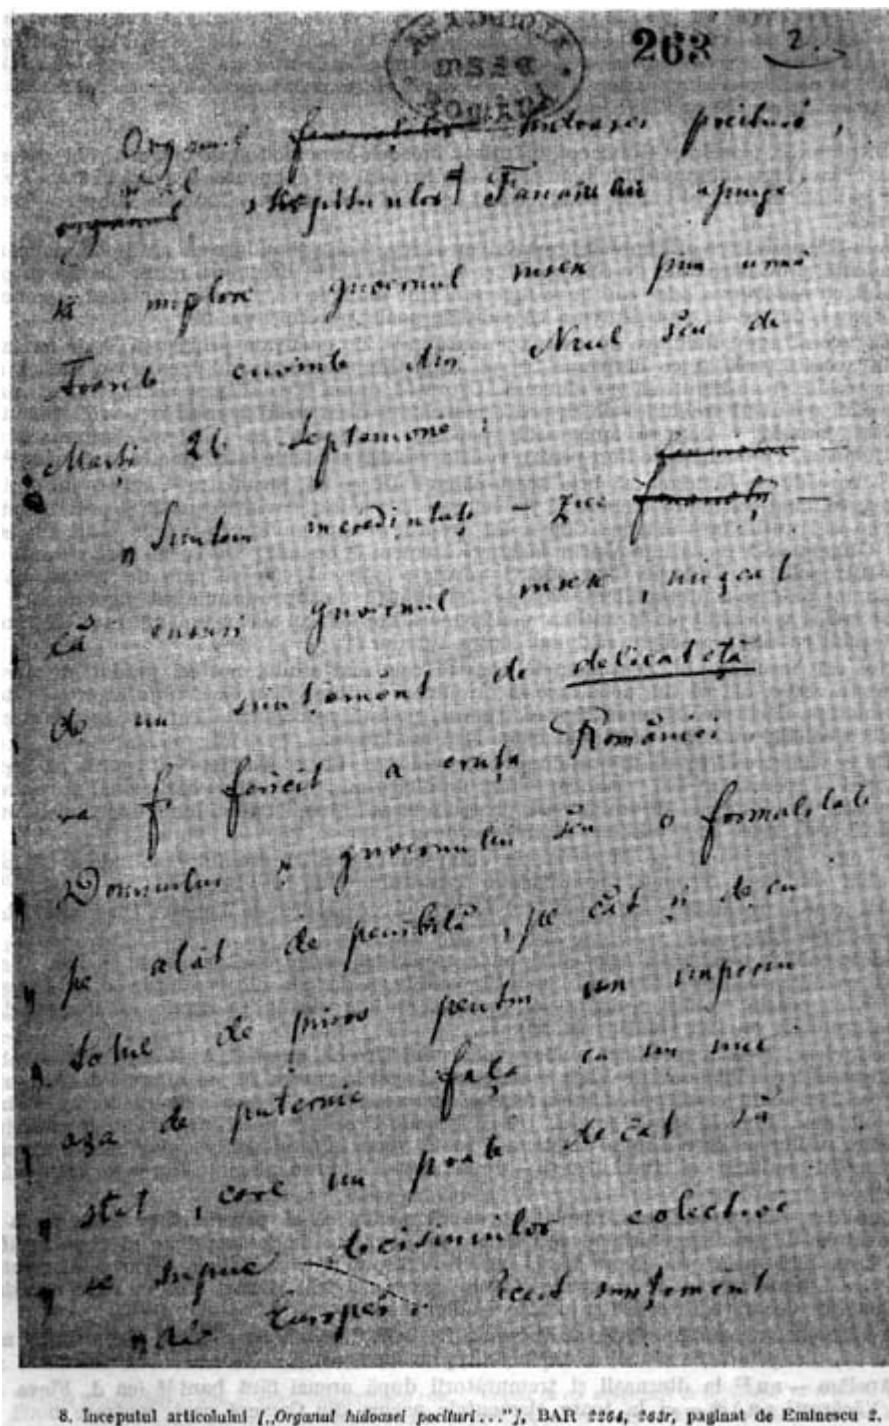 263 2.
Organul hidoasei pocituri,
și al stîrpiturilor Fanarului ajunge
să implore guvernul rusesc prin urmă
Toarele cuvinte din Nrul său de
Marți 26 Septemvrie:
„Suntem incredințați – zice –
că însuși guvernul rusesc, mișcat
de un simțemânt de delicateță
va fi fericit a cruța României
Domnului și guvernului său o formalitate
„pe atât de penibilă, pe cât și de cu
„totul de prisos pentru un imperiu
așa de puternic față cu un mic
„stat, care nu poate decât să
„se supue decisiunilor colective
„ale Europei". Acest simțemânt
8. Începutul articolului [„Organul hidoasei pocituri..."], BAR 2264, 263r, paginat de Eminescu 2.